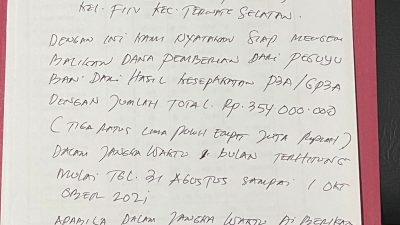 KEL. FITU KEC. TERNATE SELATAN.
DENGAN INI KAMI NYATAKAN SIAP MENGEM
BALIKAN DANA PEMBERIAN DARI PEGUYU
BAN DARI HASIL KESEPAKATAN P3A/GP3A
DENGAN JUMLAH TOTAL. Rp. 354 000.000
(TIGA RATUS LIMA PULUH EMPAT JUTA RUPIAH)
DALAM JANGKA WAKTU BULAN TERHITUNG
MULAI TGL. 31 AGUSTUS SAMPAI 1 OKT
OBER 2021
APABILA DALAM JANGKA WAKTU DI BERIKAN